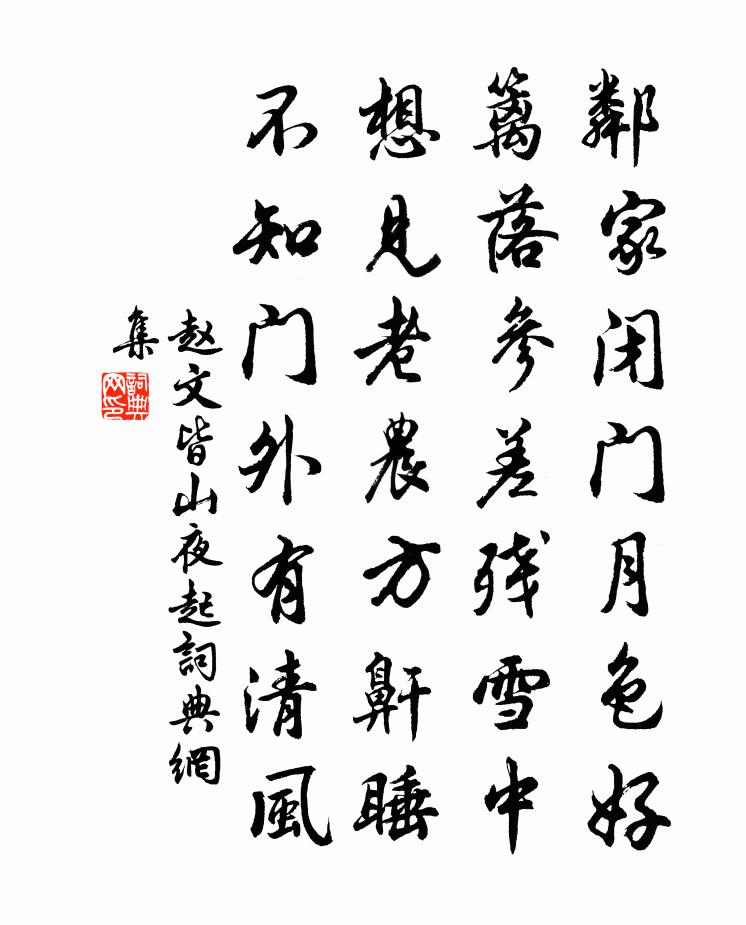 鄰家闭门月色好
籬落參差残雪中
想見老農方鼾睡
不知门外有清風
赵文皆山夜起詞典網
集
詞典
网印